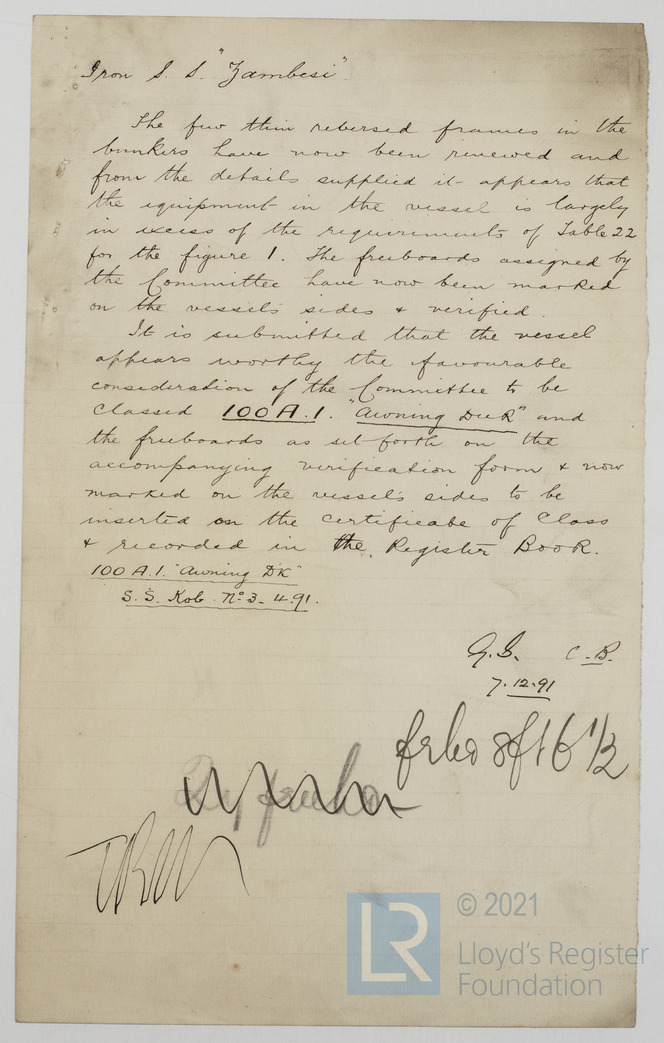 Iron S. S. "Zambesi"
The few thin reversed frames in the
bunkers have now been renewed and
from the details supplied it appears that
the equipment in the vessel is largely
in excess of the requirements of Table 22
for the figure 1. The freeboards assigned by
the Committee have now been marked
on the vessels sides & verified.
It is submitted that the vessel
appears worthy the favourable
consideration of the Committee to be
Classed 100 A.1. "Awning Deck" and
the freeboards as set forth on the
accompanying verification form & now
marked on the vessel's sides to be
inserted on the Certificate of Class
& recorded in the Register Book.
100 A.1. "Awning Dk"
S.S. Kob. No. 3 - 4.91.
G.S. C.B.
7.12.91
8ft 6 1/2
LR © 2021
Lloyd's Register
Foundation